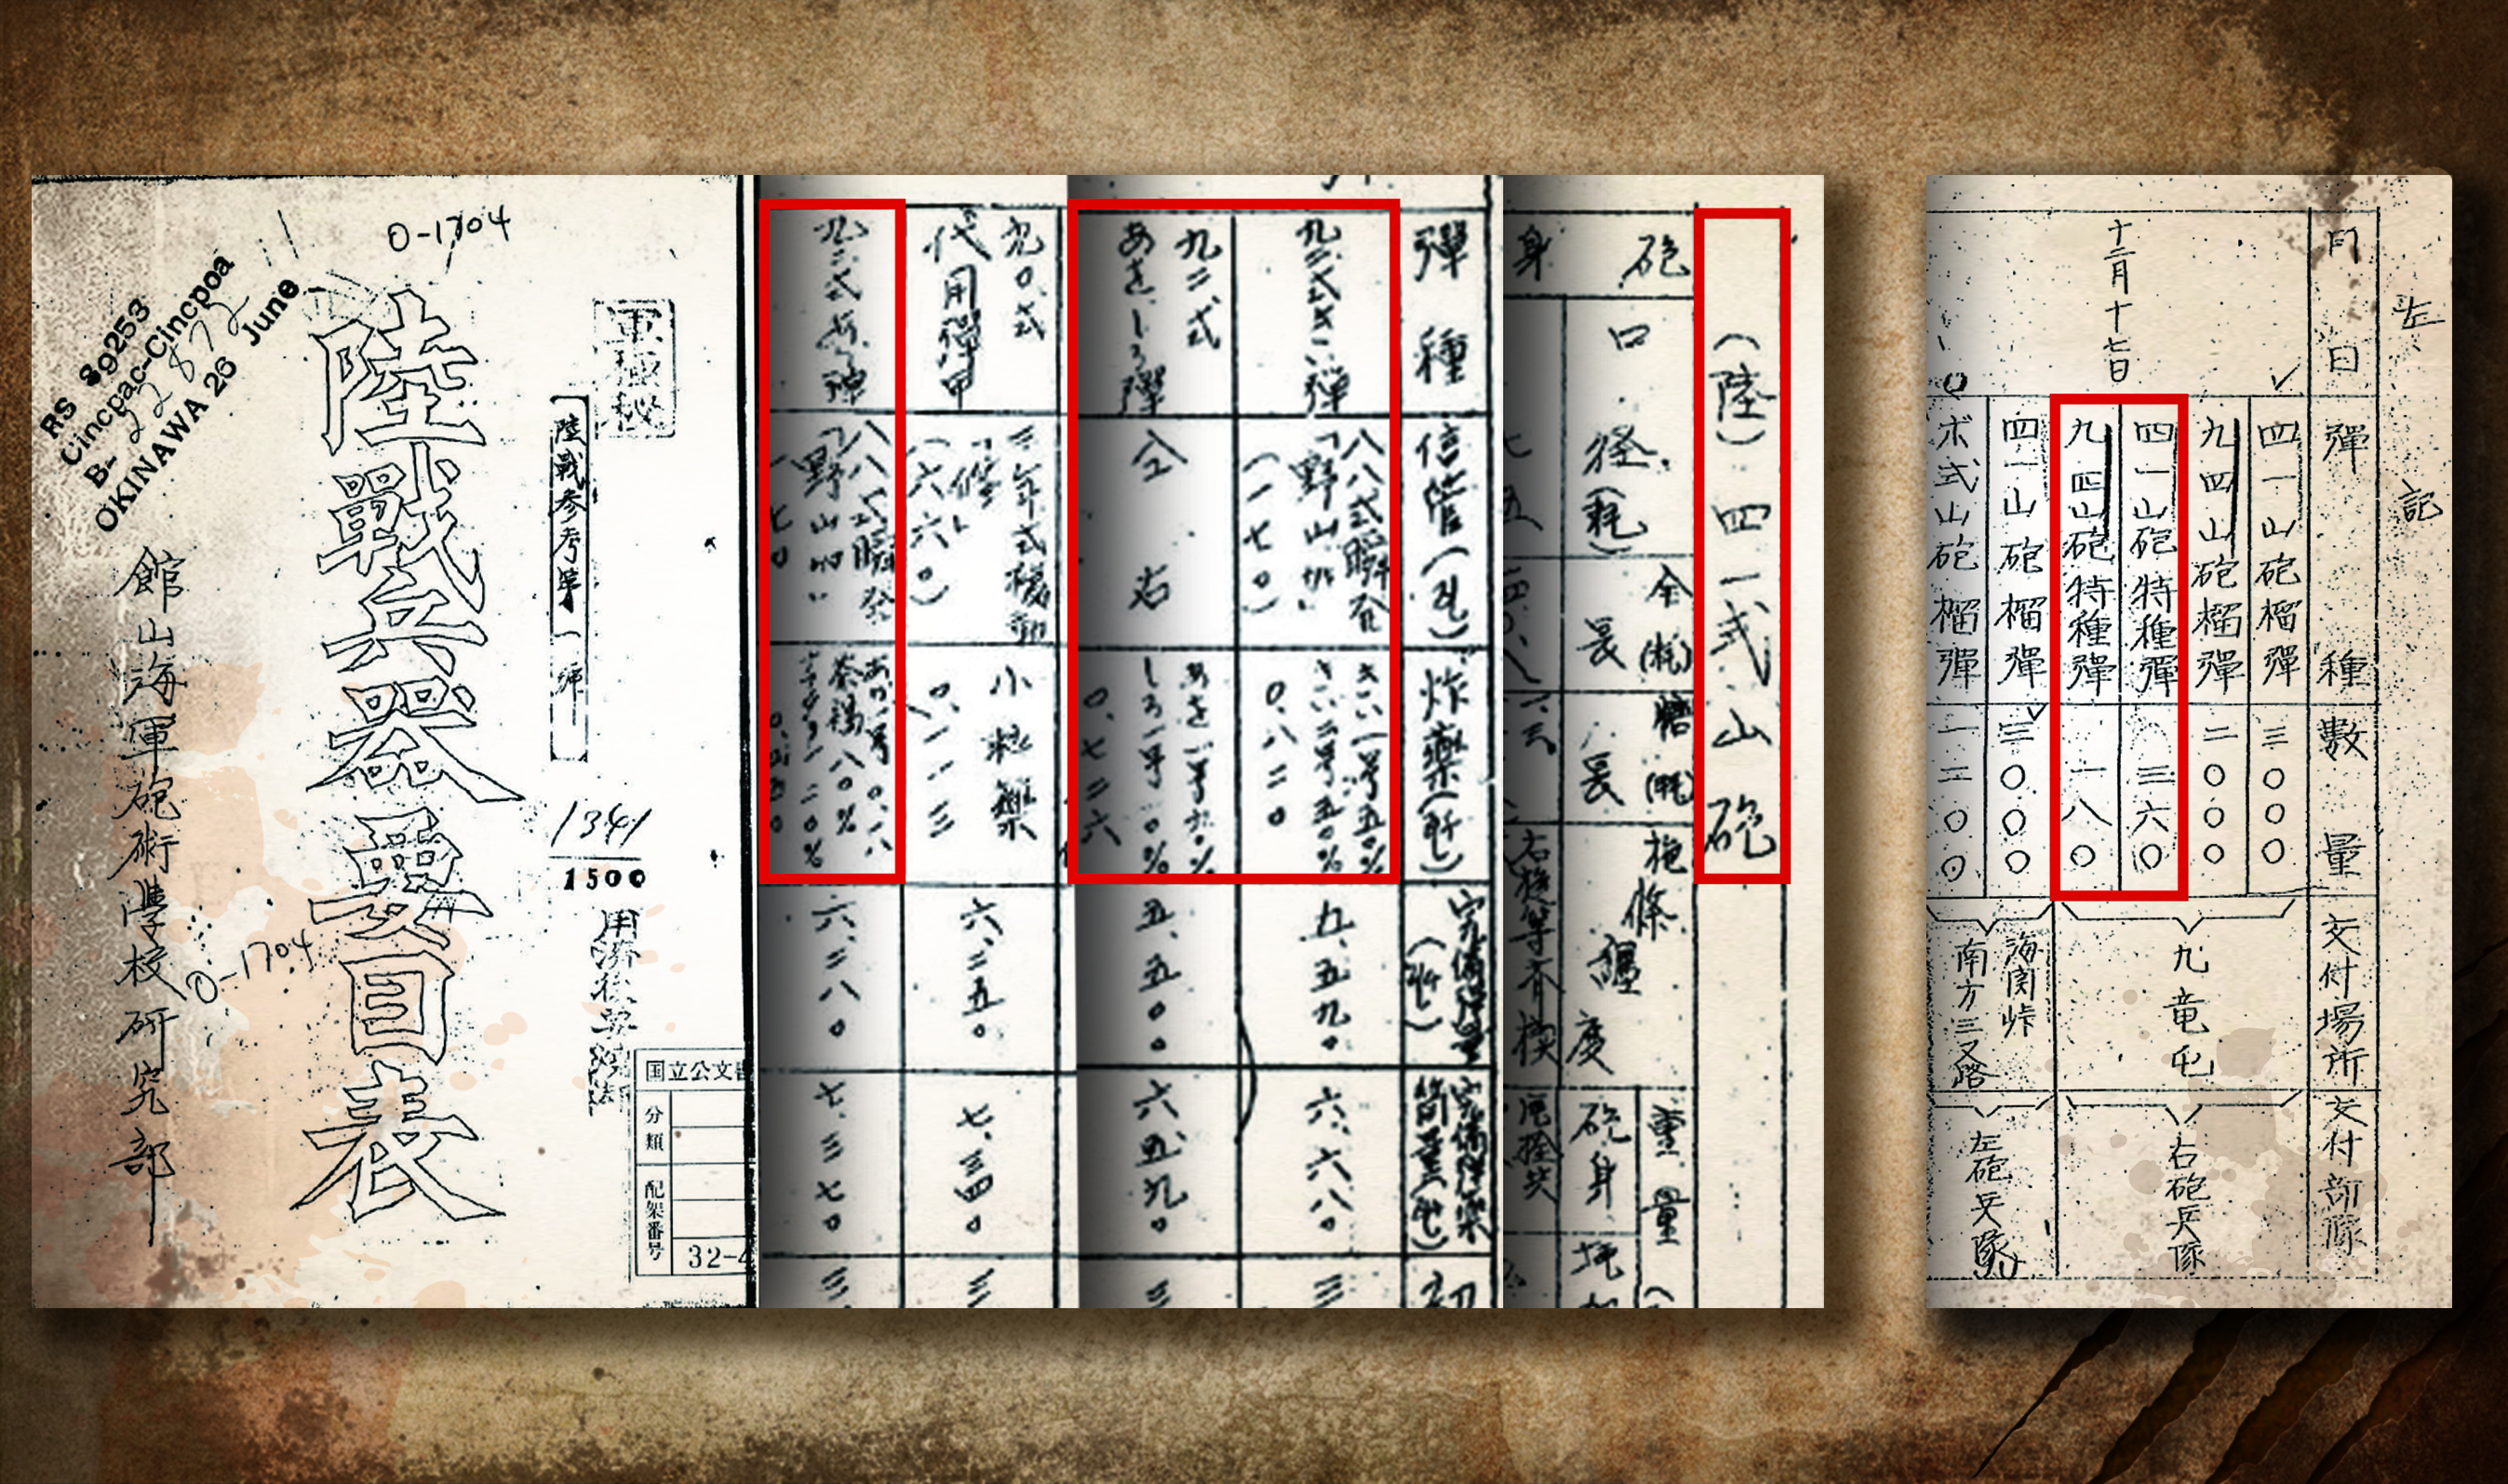 0-1704
RS 89253
Cincpac-Cincpoa
B-
OKINAWA 26 June
軍極秘
陸戰参考第一號
陸戰兵器要目表
館山海軍砲術學校研究部
1341
1500
0-1704
用済後要
国立公文書
分類
配架番号
32-4
(陸)四一式山砲
砲身
口径(粍)
全長(粍)
長(粍)
施條纏度
右
重量
砲身
彈種
信管(瓦)
炸藥(瓩)
九二式きい弾
八八式瞬発
「野山加」
(一七〇)
きい一号五〇%
きい二号五〇%
〇、八二〇
五、五九〇
六、六八〇
三
九二式
あをしろ彈
仝右
しろ一号
〇、七二六
五、五〇〇
六、五九〇
三
九〇式
代用彈甲
三年式複動
「修」
(六六〇)
小粒藥
〇、一一三
六、二五〇
七、三四〇
三
八八式瞬発
「野山加」
(一七〇)
茶褐八〇%
六、二八〇
七、三七〇
三
左記
月日
彈種
數量
交付場所
交付部隊
十二月十七日
四一山砲榴彈
三〇〇〇
九四山砲榴彈
二〇〇〇
四一山砲特種彈
三六〇
九四山砲特種彈
一八〇
九竜屯
右砲兵隊
四一山砲榴彈
三〇〇〇
ボ式山砲榴彈
一二〇〇
海関峠
南方三叉路
左砲兵隊